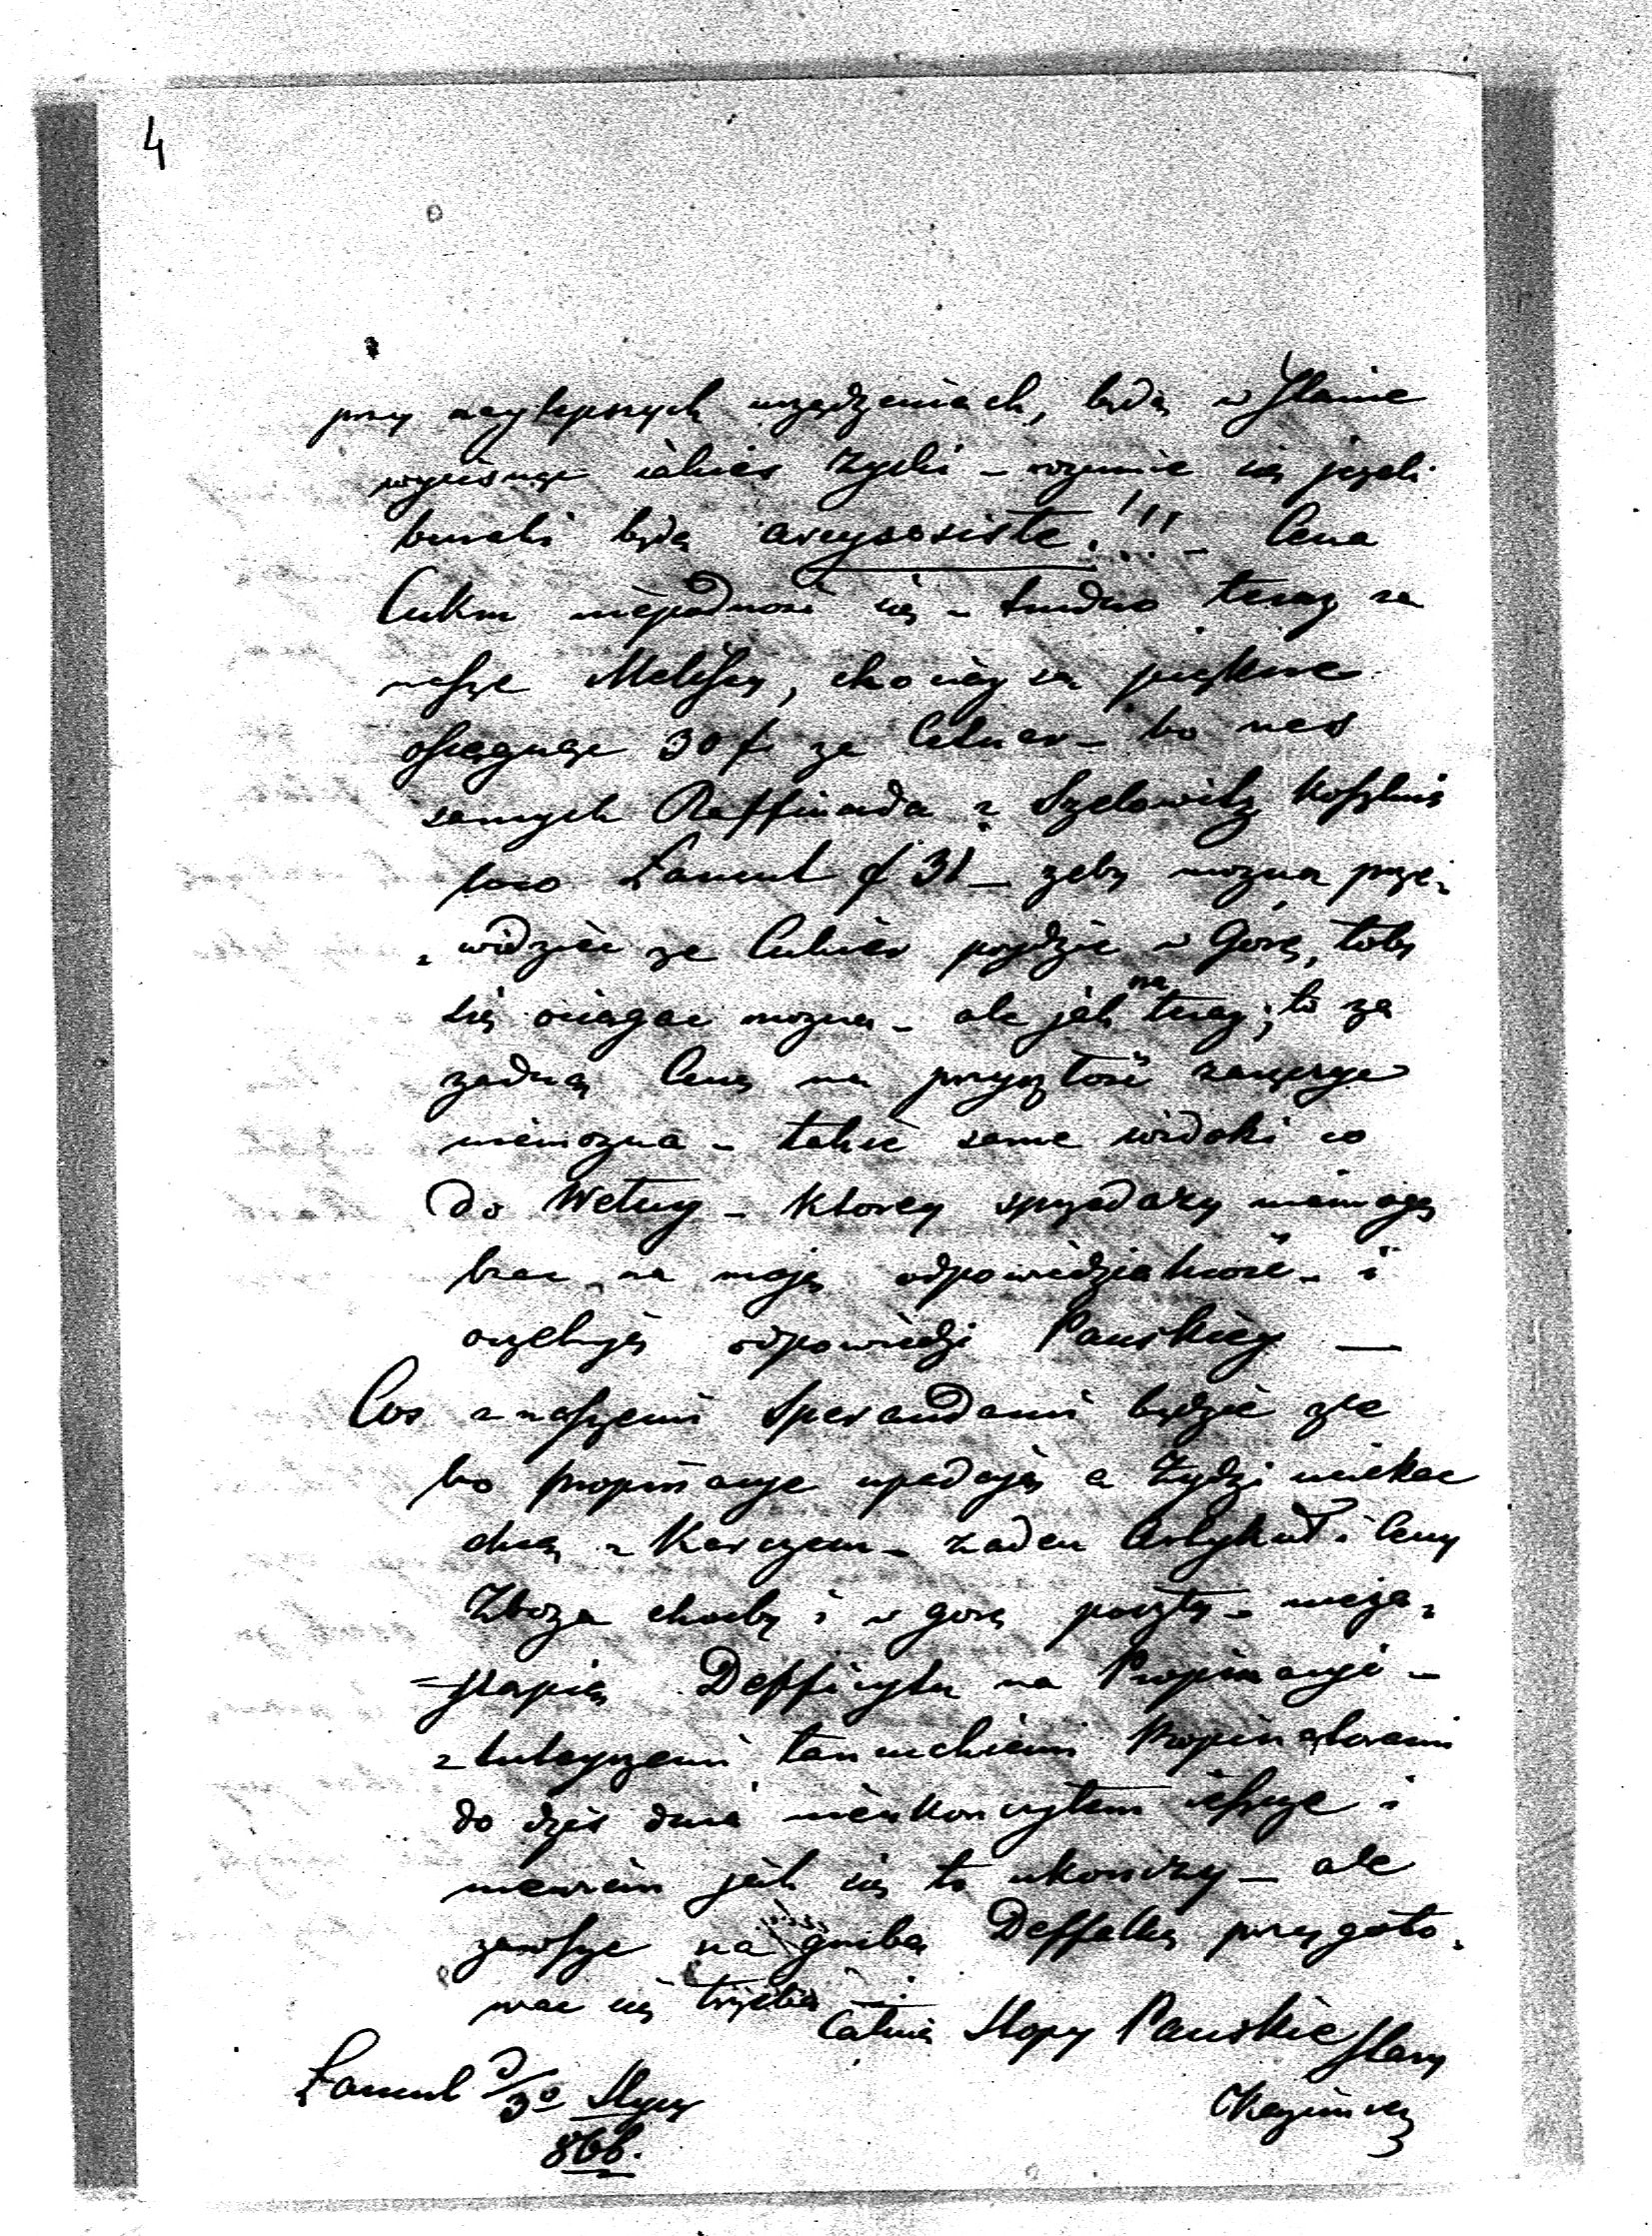 4
przy naylepszych urządzeniach, będą w stanie
wycisnąć iakieś Zyski – rozumie się jeżeli
buraki będą arcysoiste!!! – Cena
Cukru niepodnosi się – trudno teraz za
nasze Melisy, chociaż są piękne
osiągnąć 30 f za Cetnar – bo nas
samych Raffinada z Szelowitz kosztuie
loco Łancut f 31 – zeby mozna prze-
-widziec ze Cukier pojdzie w Górę, toby
się ociągac mozna – ale jak na teraz; to za
zadną Cenę na przyszłość zaręczyc
niemozna – takie same widoki co
do Wełny – ktorey sprzedazy niemogę
brac na moją odpowiedzialność – i
oczekuję odpowiedzi Pańskiey —
Cos z naszemi Sperandami będzie zle
bo propinacye upadają a Żydzi uciekac
chcą z Karczem – zaden Artykuł i Ceny
Zboza chocby i w gorę poszły – nieza-
-stąpią Defficytu na Propinacyi –
z tuteyszemi łancuckiemi Propinatorami
do dziś dnia nieukonczyłem ieszcze i
niewiem jak się to ukonczy – ale
zawsze na grubą Deffalkę przygoto-
wac się trzeba —
Całuię Stopy Pańskie Stary
Łancut d/30 Stycz
Kazimierz
868.